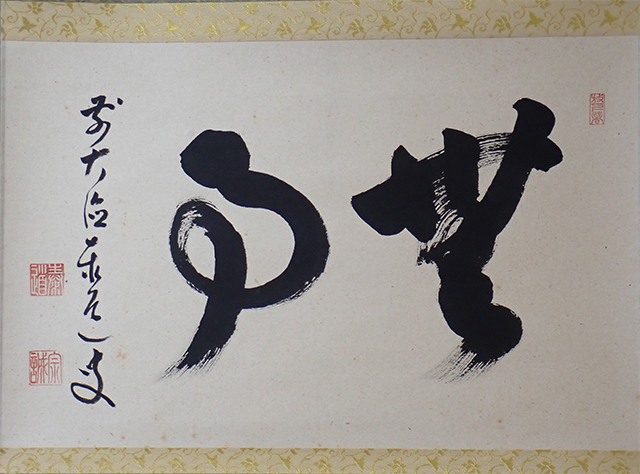 無事
前大徳泰道叟